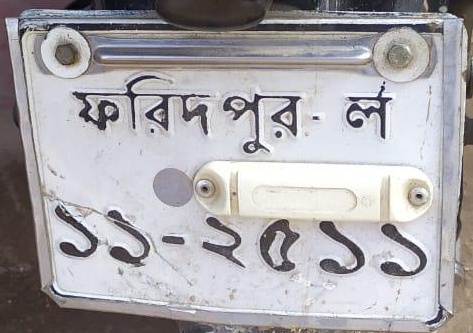 ফরিদপুর-ল
১১-২৫১১